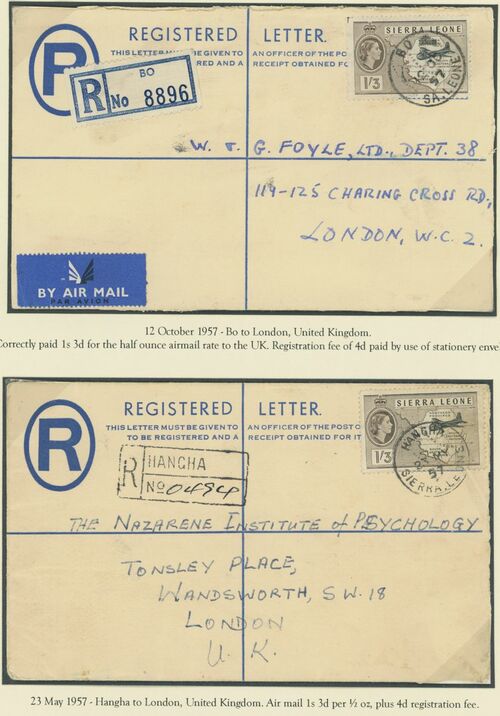 REGISTERED LETTER.
THIS LETTER MUST BE GIVEN TO AN OFFICER OF THE POST
REGISTERED AND A RECEIPT OBTAINED FOR
R
BO
R No 8896
SIERRA LEONE
1/3
BO
57
SA. LEONE
W. & G. FOYLE, LTD., DEPT. 38
119-125 CHARING CROSS RD,
LONDON, W.C. 2.
BY AIR MAIL
PAR AVION
12 October 1957 - Bo to London, United Kingdom.
Correctly paid 1s 3d for the half ounce airmail rate to the UK. Registration fee of 4d paid by use of stationery enve
REGISTERED LETTER.
THIS LETTER MUST BE GIVEN TO AN OFFICER OF THE POST O
TO BE REGISTERED AND A RECEIPT OBTAINED FOR IT
R
R HANGHA
No 0494
SIERRA LEONE
1/3
HANGHA
57
SIERRA LEONE
THE NAZARENE INSTITUTE of PSYCHOLOGY
TONSLEY PLACE,
WANDSWORTH, S.W. 18
LONDON
U. K.
23 May 1957 - Hangha to London, United Kingdom. Air mail 1s 3d per ½ oz, plus 4d registration fee.